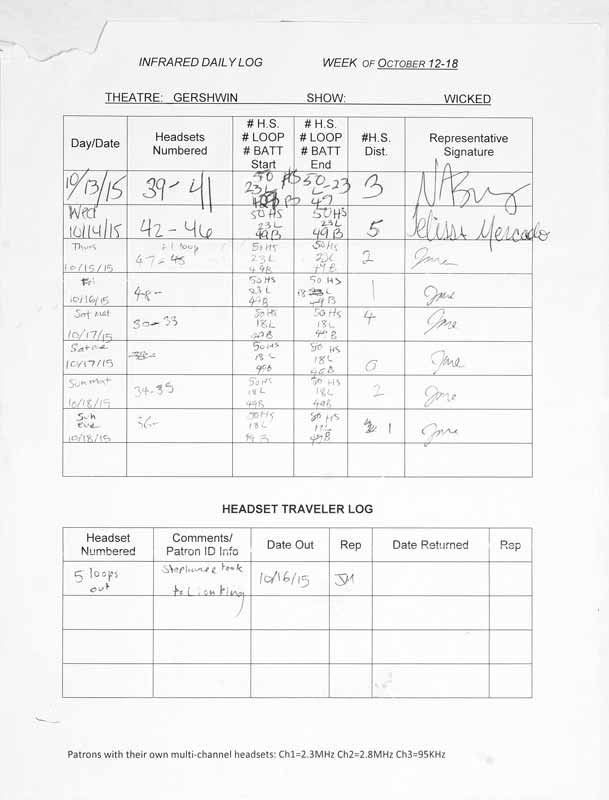 INFRARED DAILY LOG WEEK OF OCTOBER 12-18
THEATRE: GERSHWIN SHOW: WICKED
Day/Date Headsets Numbered # H.S. # LOOP # BATT Start # H.S. # LOOP # BATT End #H.S. Dist. Representative Signature
10/13/15 39-41 50 HS 23 L B 50 L-23 47 3
Wed 10/14/15 42-46 50 HS 23 L 49 B 50 HS 23 L 49 B 5 Melissa Mercado
Thurs 10/15/15 47- +1 loop 50 HS 23 L 49 B 50 HS 23 L 49 B 2
Fri 10/16/15 48- 50 HS 23 L 49 B 50 HS 18 L 49 B 1
Sat mat 10/17/15 30-33 50 HS 18 L 49 B 50 HS 18 L 49 B 4
10/17/15 50 HS 18 L 49 B 50 HS 18 L 49 B 0
Sun mat 10/18/15 34-35 50 HS 18 L 49 B 50 HS 18 L 49 B 2
Sun Eve 10/18/15 36- 50 HS 18 L 49 B 50 HS 49 B 1
HEADSET TRAVELER LOG
Headset Numbered Comments/ Patron ID Info Date Out Rep Date Returned Rep
5 loops out Stephanie took to Lion King 10/16/15 JM
Patrons with their own multi-channel headsets: Ch1=2.3MHz Ch2=2.8MHz Ch3=95KHz